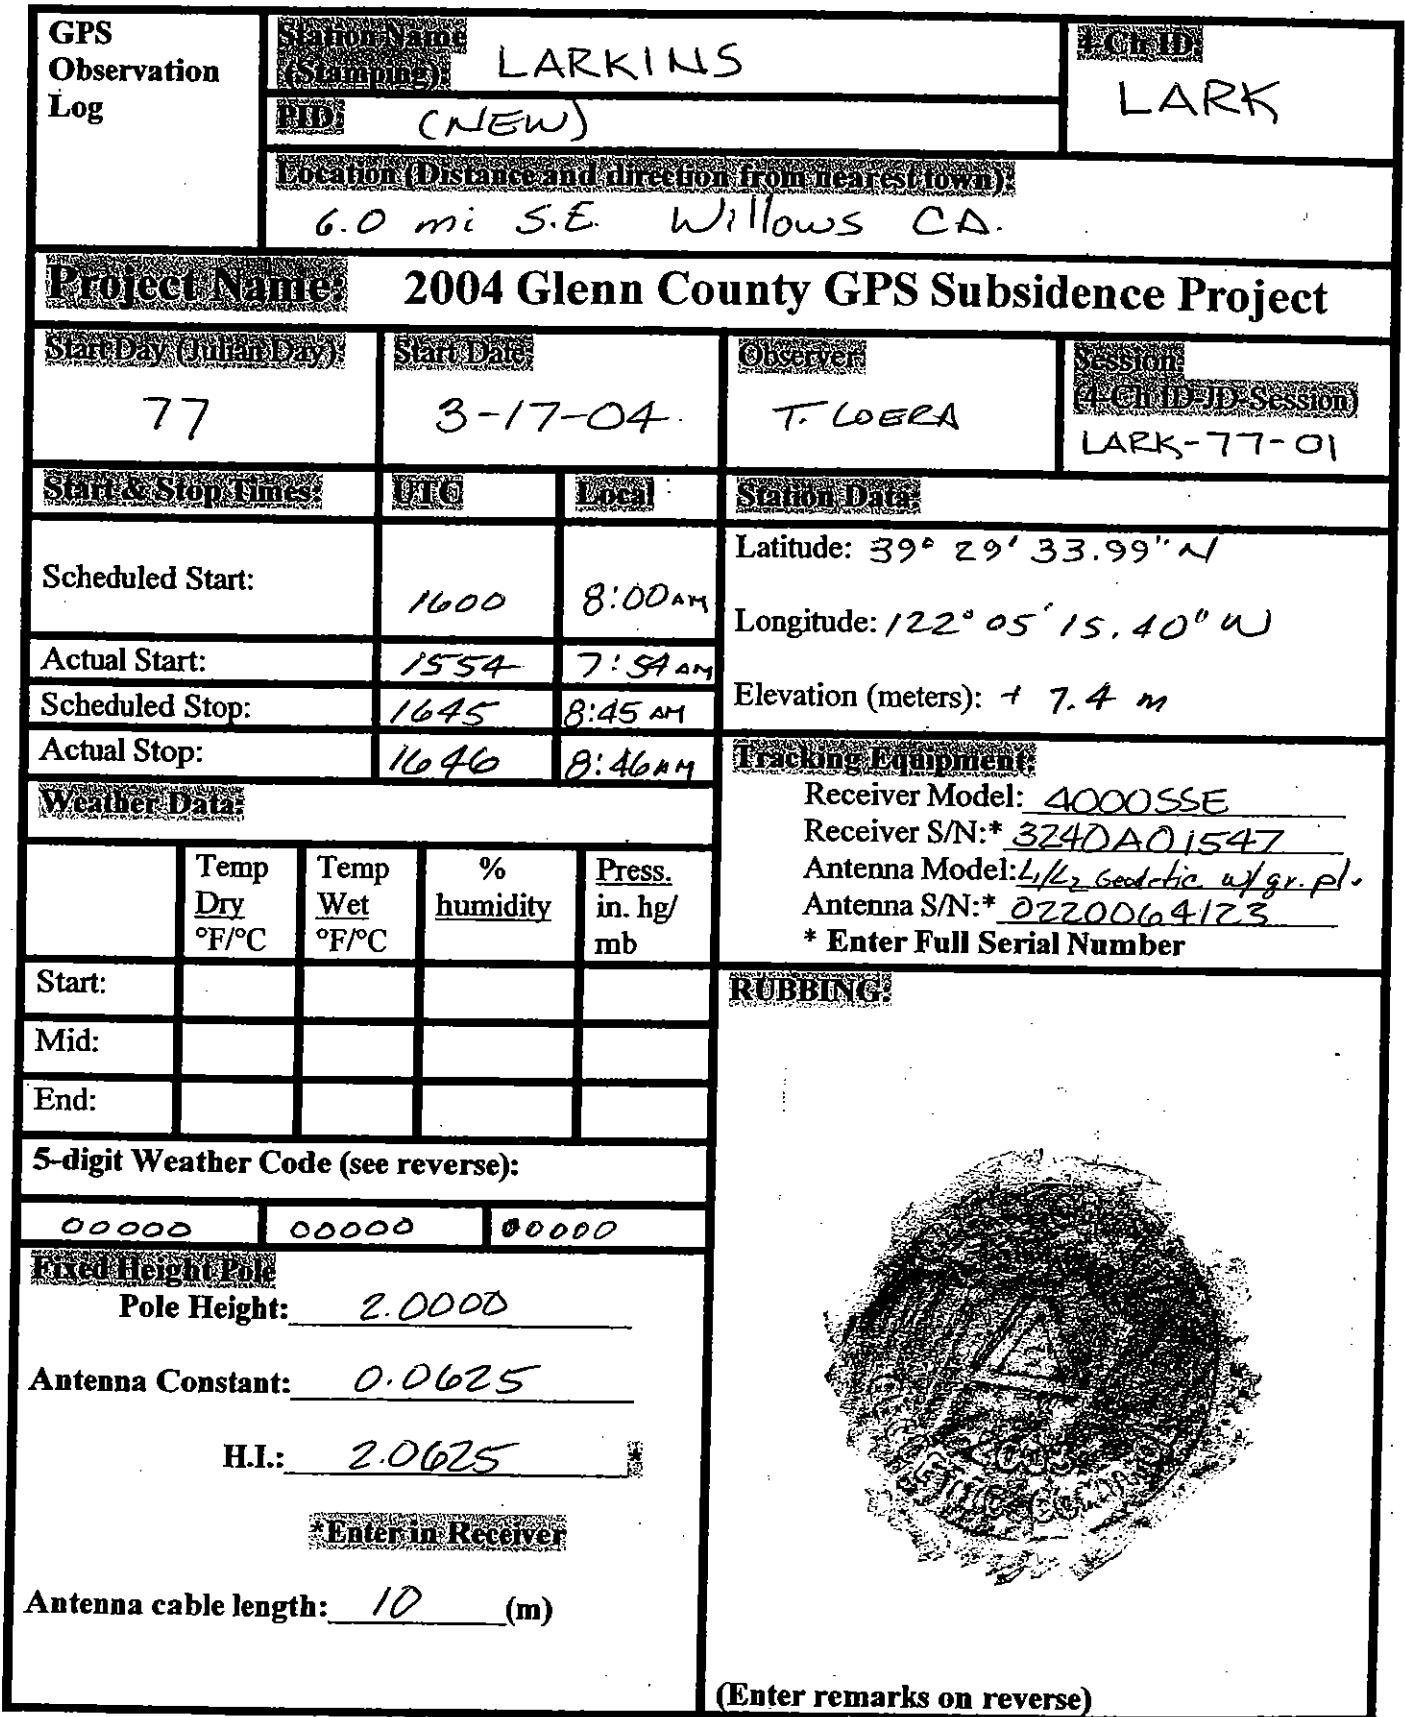 GPS
Observation
Log
Station Name
(Stamping):
LARKINS
4-Ch ID:
LARK
PID: (NEW)
Location (Distance and direction from nearest town):
6.0 mi S.E. Willows CA.
Project Name: 2004 Glenn County GPS Subsidence Project
Start Day (Julian Day):
77
Start Date:
3-17-04
Observer:
T. LOERA
Session:
(4-Ch ID-JD-Session)
LARK-77-01
Start & Stop Times: UTC Local
Scheduled Start: 1600 8:00 AM
Actual Start: 1554 7:54 AM
Scheduled Stop: 1645 8:45 AM
Actual Stop: 1646 8:46 AM
Station Data:
Latitude: 39° 29' 33.99" N
Longitude: 122° 05' 15.40" W
Elevation (meters): + 7.4 m
Weather Data:
Temp Temp % Press.
Dry Wet humidity in. hg/
°F/°C °F/°C mb
Start:
Mid:
End:
Tracking Equipment:
Receiver Model: 4000SSE
Receiver S/N:* 3240A01547
Antenna Model: L1/L2 Geodetic w/gr. pl.
Antenna S/N:* 0220064123
* Enter Full Serial Number
5-digit Weather Code (see reverse):
00000 00000 00000
Fixed Height Pole
Pole Height: 2.0000
Antenna Constant: 0.0625
H.I.: 2.0625 *
*Enter in Receiver
Antenna cable length: 10 (m)
RUBBING:
(Enter remarks on reverse)